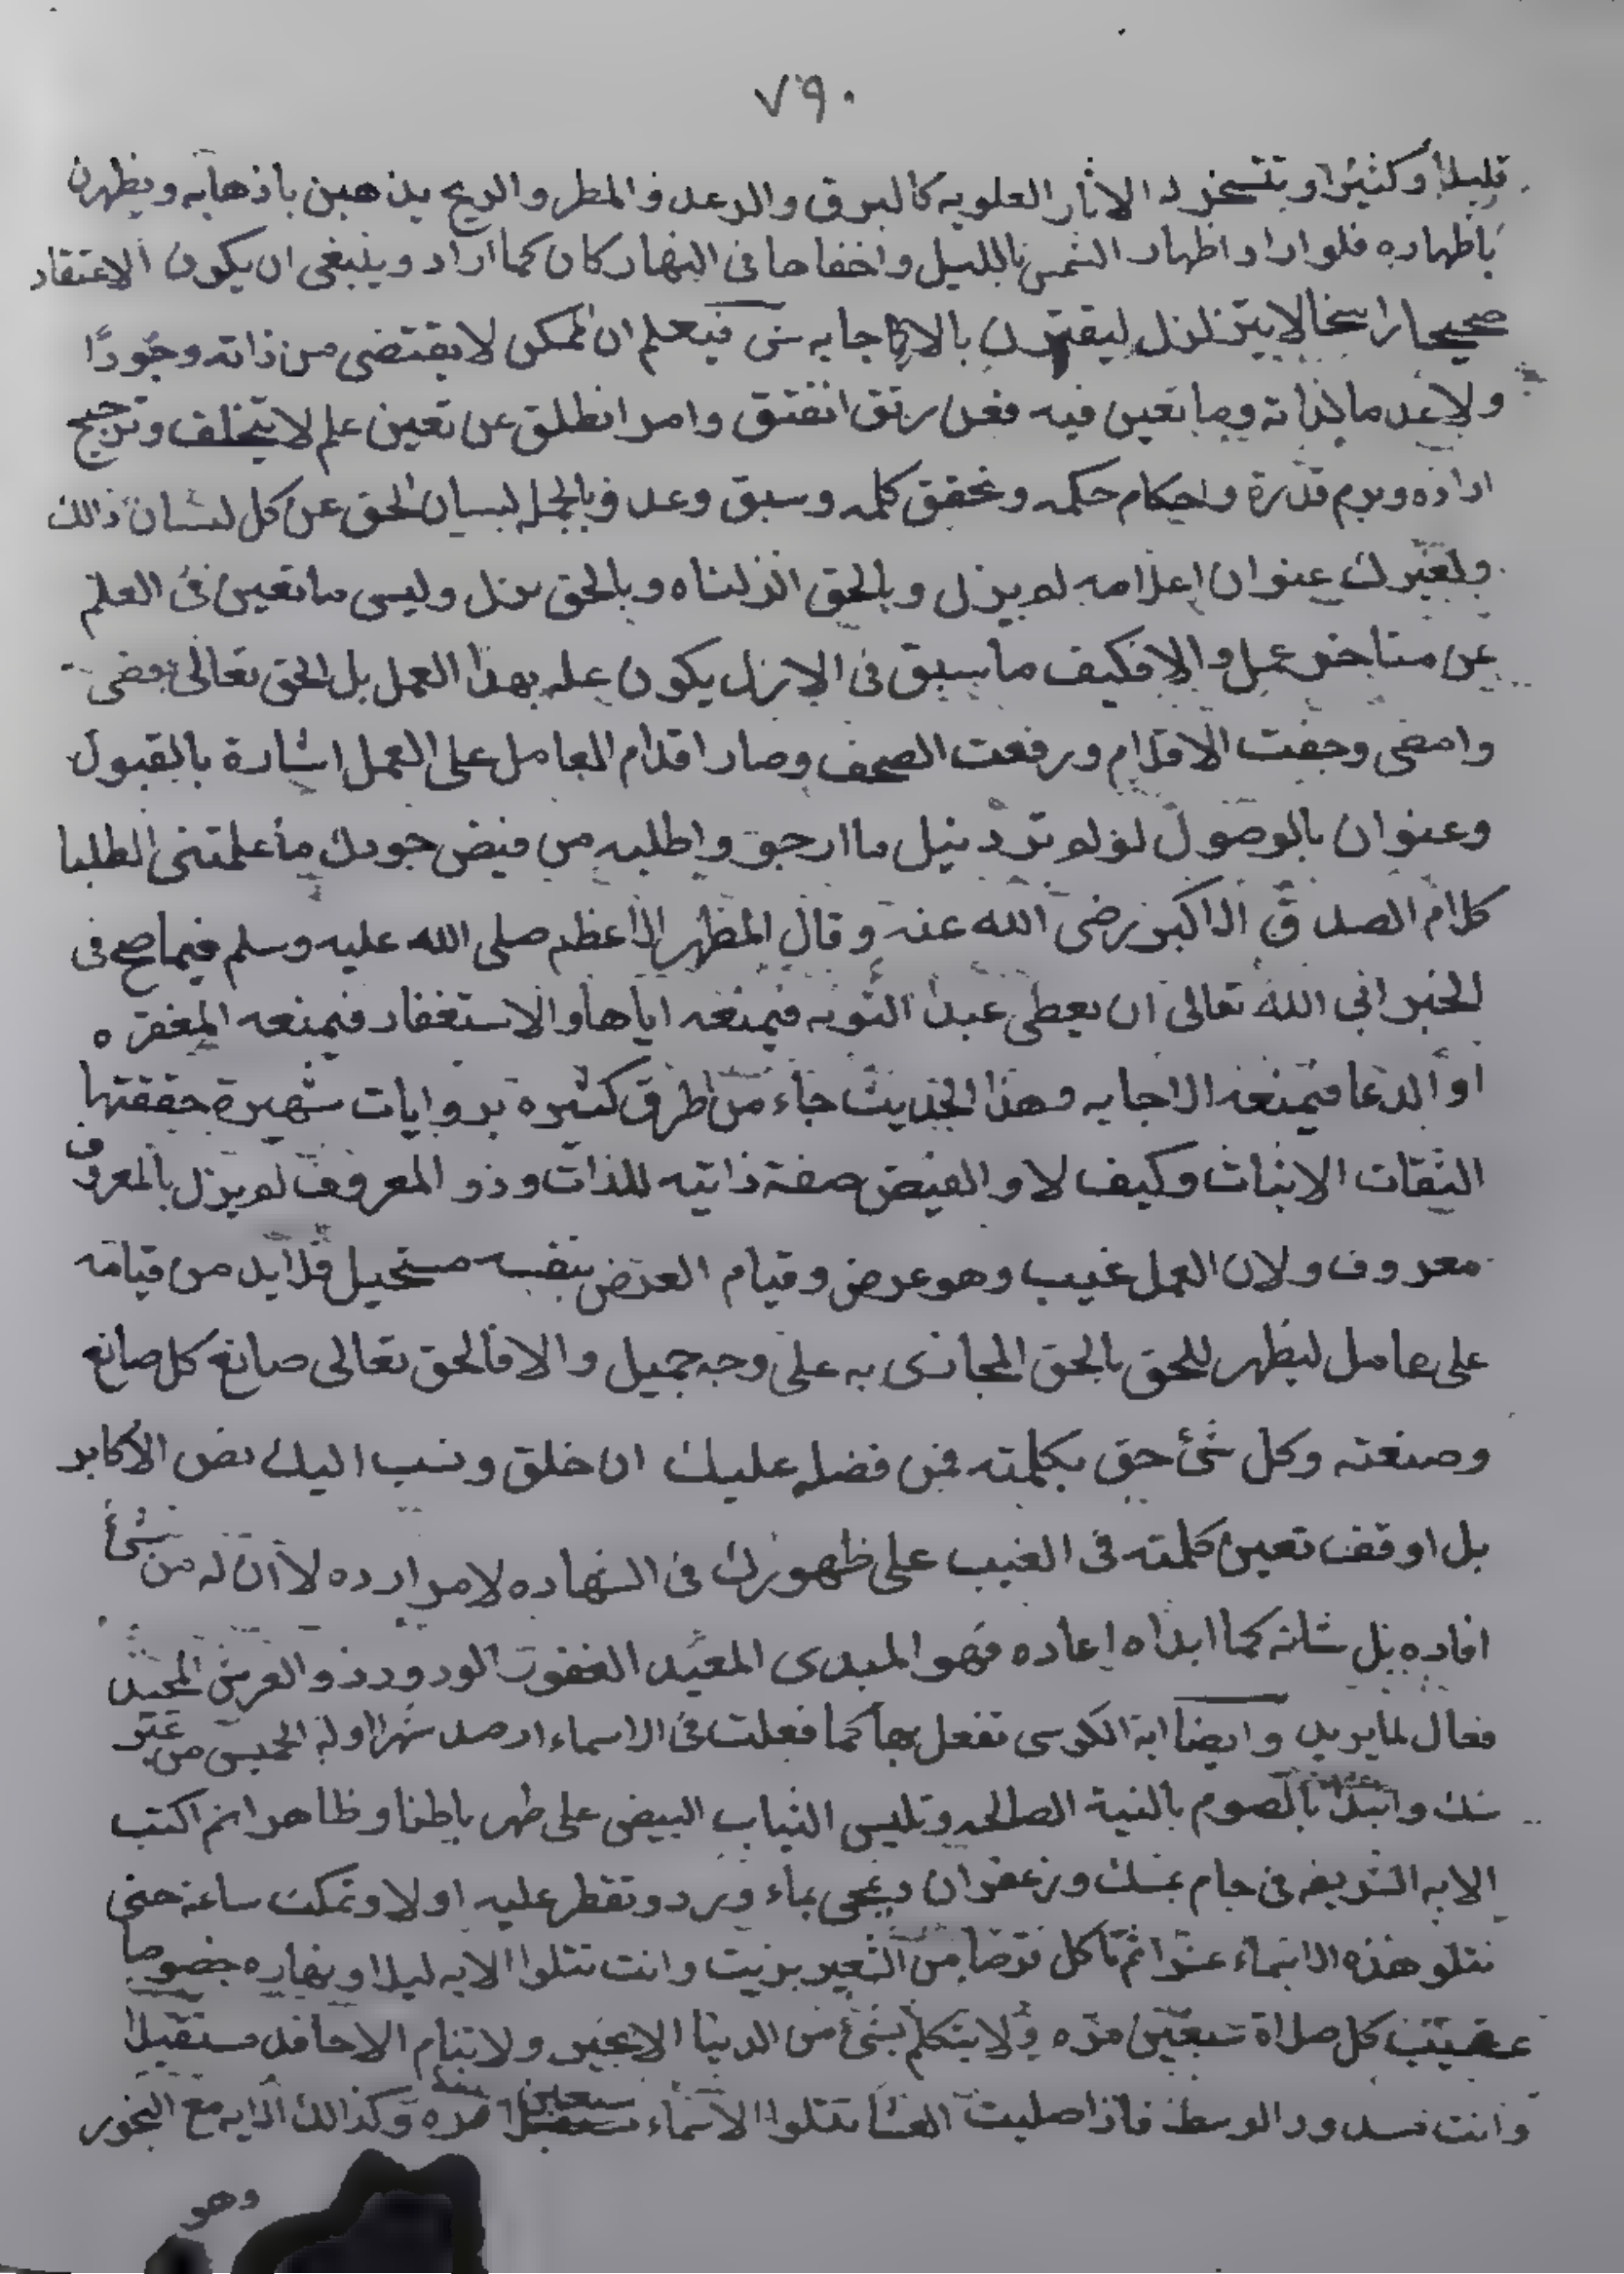 ٧٩٠
قليلا أو كثيرا وتتسخر له الاثار العلويه كالبرق والرعد والمطر والريح يذهبن باذهابه ويظهرن
باظهاره فلو اراد اظهار الشمس بالليل واخفاها في النهار كان كما اراد وينبغي ان يكون الاعتقاد
صحيحا راسخا لا يتزلزل ليقترن بالاجابه شى فيعلم ان الممكن لا يقتضى من ذاته وجودًا
ولا عدما لذاته وما تعين فيه فعن رتق انفتق وامر انطلق عن تعين علم لا يتخلف وترجيح
اراده وبرم قدرة واحكام حكمه وتحقق كلمه وسبق وعد وبالجمله لسان الحق عن كل لسان ذالك
ولغيرك عنوان اعلامه لم يزل وبالحق انزلناه وبالحق نزل وليس ما تعين في العلم
عن متاخر عمل والا فكيف ما سبق في الازل يكون عله بهذا العمل بل الحق تعالى قضى
وامضى وجفت الاقلام ورفعت الصحف وصار اقدام العامل على العمل اشارة بالقبول
وعنوان بالوصول لو لم ترد نيل ما ارجو واطلبه من فيض جودك ما علمتني الطلبا
كلام الصدق الاكبر رضى الله عنه وقال المظهر الاعظم صلى الله عليه وسلم فيما صح في
الخبر ابى الله تعالى ان يعطى عبدا التوبه فيمنعه اياها والاستغفار فيمنعه المغفره
او الدعا فيمنعه الاجابه وهذا الحديث جاء من طرق كثيره بروايات شهيرة حققتها
الثقات الاثبات وكيف لا والفيض صفة ذاتيه للذات وذو المعروف لم يزل بالمعروف
معروف ولان العمل غيب وهو عرض وقيام العرض بنفسه مستحيل فلابد من قيامه
على عامل ليظهر للحق بالحق المجازى به على وجه جميل والا فالحق تعالى صانع كل صانع
وصنعته وكل شئ حق بكلمته فمن فضله عليك ان خلق ونسب اليك نص الاكابر
بل اوقف تعين كلمته في الغيب على ظهورك في الشهاده لامر ارده لا ان له من شئ
افاده بل شانه كما ابداه اعاده فهو المبدى المعيد الغفور الودود ذو العرش المجيد
فعال لما يريد وايضا اية الكرسى تفعل بها كما فعلت في الاسماء ارصد شهرا اوله الخميس من غير
شك وابتدا بالصوم بالنية الصالحه وتلبس الثياب البيض على طهر باطنا وظاهرا ثم اكتب
الايه الشريفه في جام بمسك وزعفران ويمحى بماء ورد وتفطر عليه اولا وتمكث ساعة حتى
تتلو هذه الاسماء عشرا ثم تاكل قرصا من الشعير بزيت وانت تتلوا الايه ليلا ونهاره خصوصا
عقيب كل صلاة سبعين مره ولا يتكلم بشئ من الدنيا الا بخير ولا تنام الا حافل مستقبلا
وانت مسدود الوسط فاذا صليت العشا تتلوا الاسماء سبعين مره وكذالك الايه مع البخور
وهو